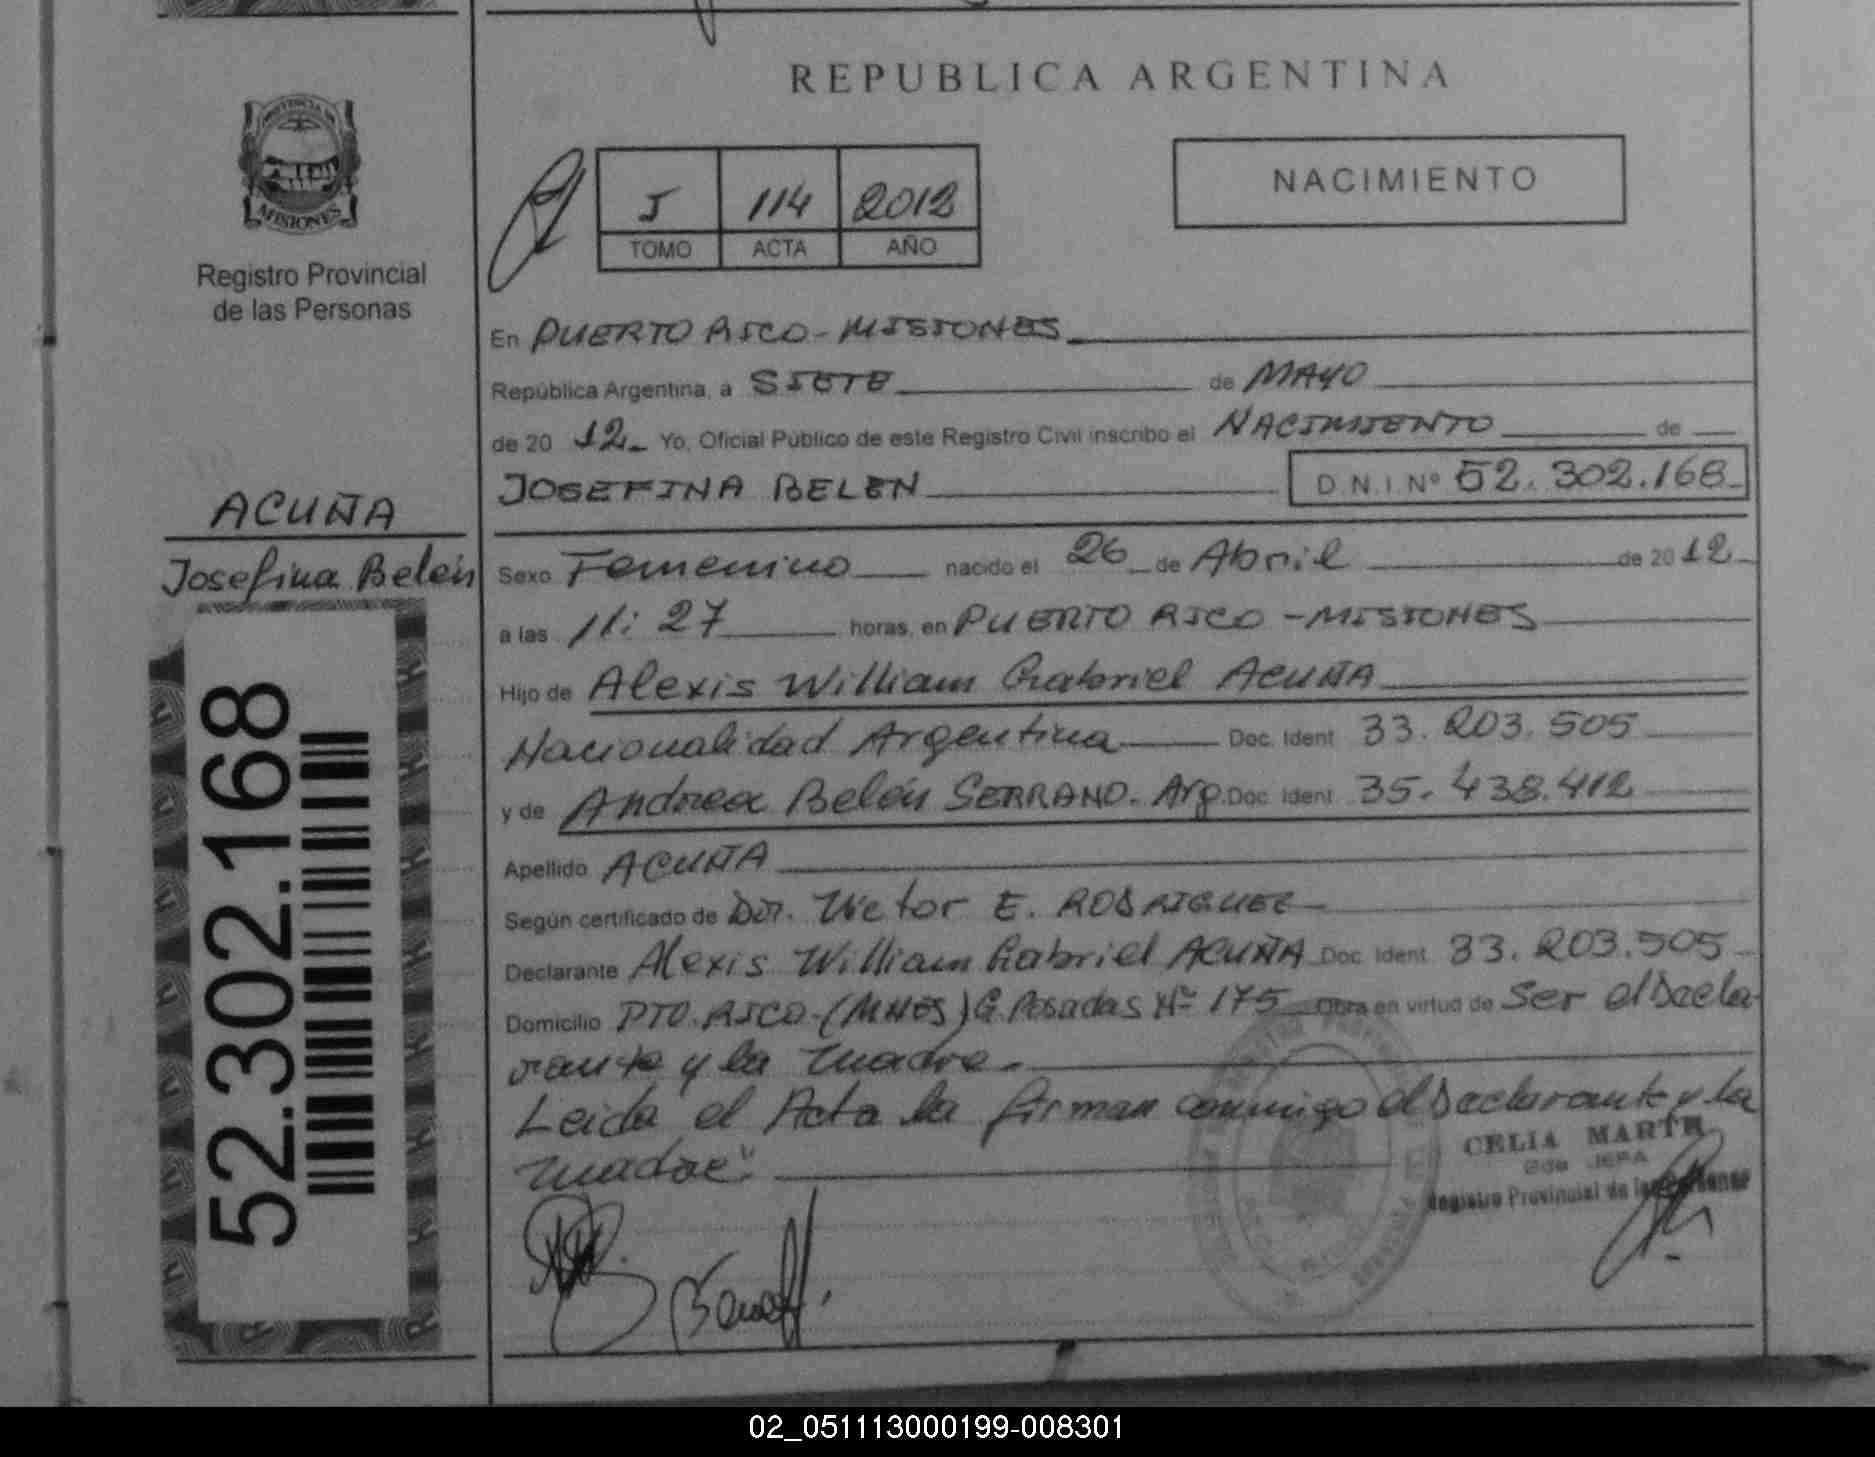 REPUBLICA ARGENTINA
PROVINCIA DE
MISIONES
Registro Provincial
de las Personas
J 114 2012
TOMO ACTA AÑO
NACIMIENTO
En PUERTO RICO - MISIONES
República Argentina, a SIETE de MAYO
de 20 12 Yo, Oficial Público de este Registro Civil inscribo el NACIMIENTO de
JOSEFINA BELEN D.N.I. Nº 52.302.168
ACUÑA
Josefina Belén
Sexo Femenino nacido el 26 de Abril de 20 12
a las 11:27 horas, en PUERTO RICO - MISIONES
Hijo de Alexis William Gabriel ACUÑA
Nacionalidad Argentina Doc. Ident 33.203.505
y de Andrea Belén SERRANO. Arg. Doc. Ident 35.438.412
Apellido ACUÑA
Según certificado de Dr. Victor E. RODRIGUEZ
Declarante Alexis William Gabriel ACUÑA Doc. Ident 33.203.505
Domicilio PTO. RICO - (MNES) G. Posadas Nº 175 Obra en virtud de Ser el Decla-
rante y la madre.
Leida el Acta la firman conmigo el Declarante y la
madre".
CELIA MARTH
2da JEFA
Registro Provincial de las Personas
52.302.168
02_051113000199-008301